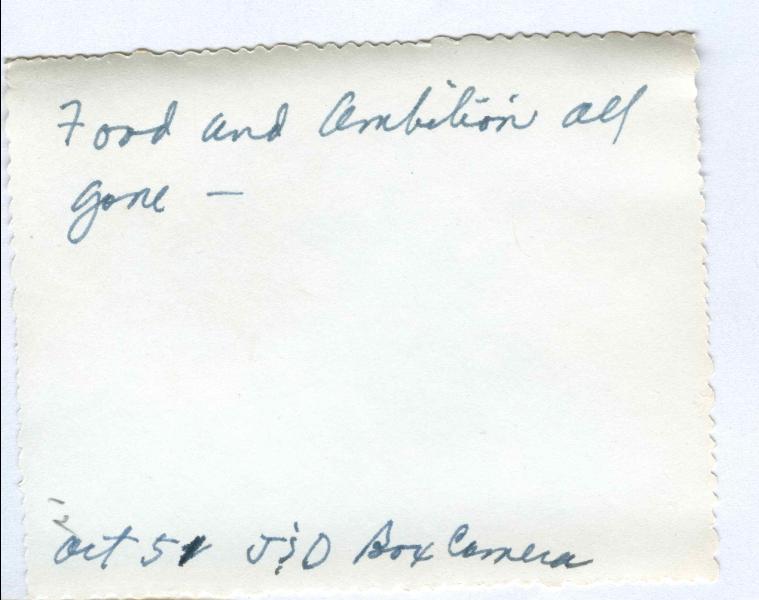 Food and Ambition all
gone —
Oct 51 J&D Box Camera